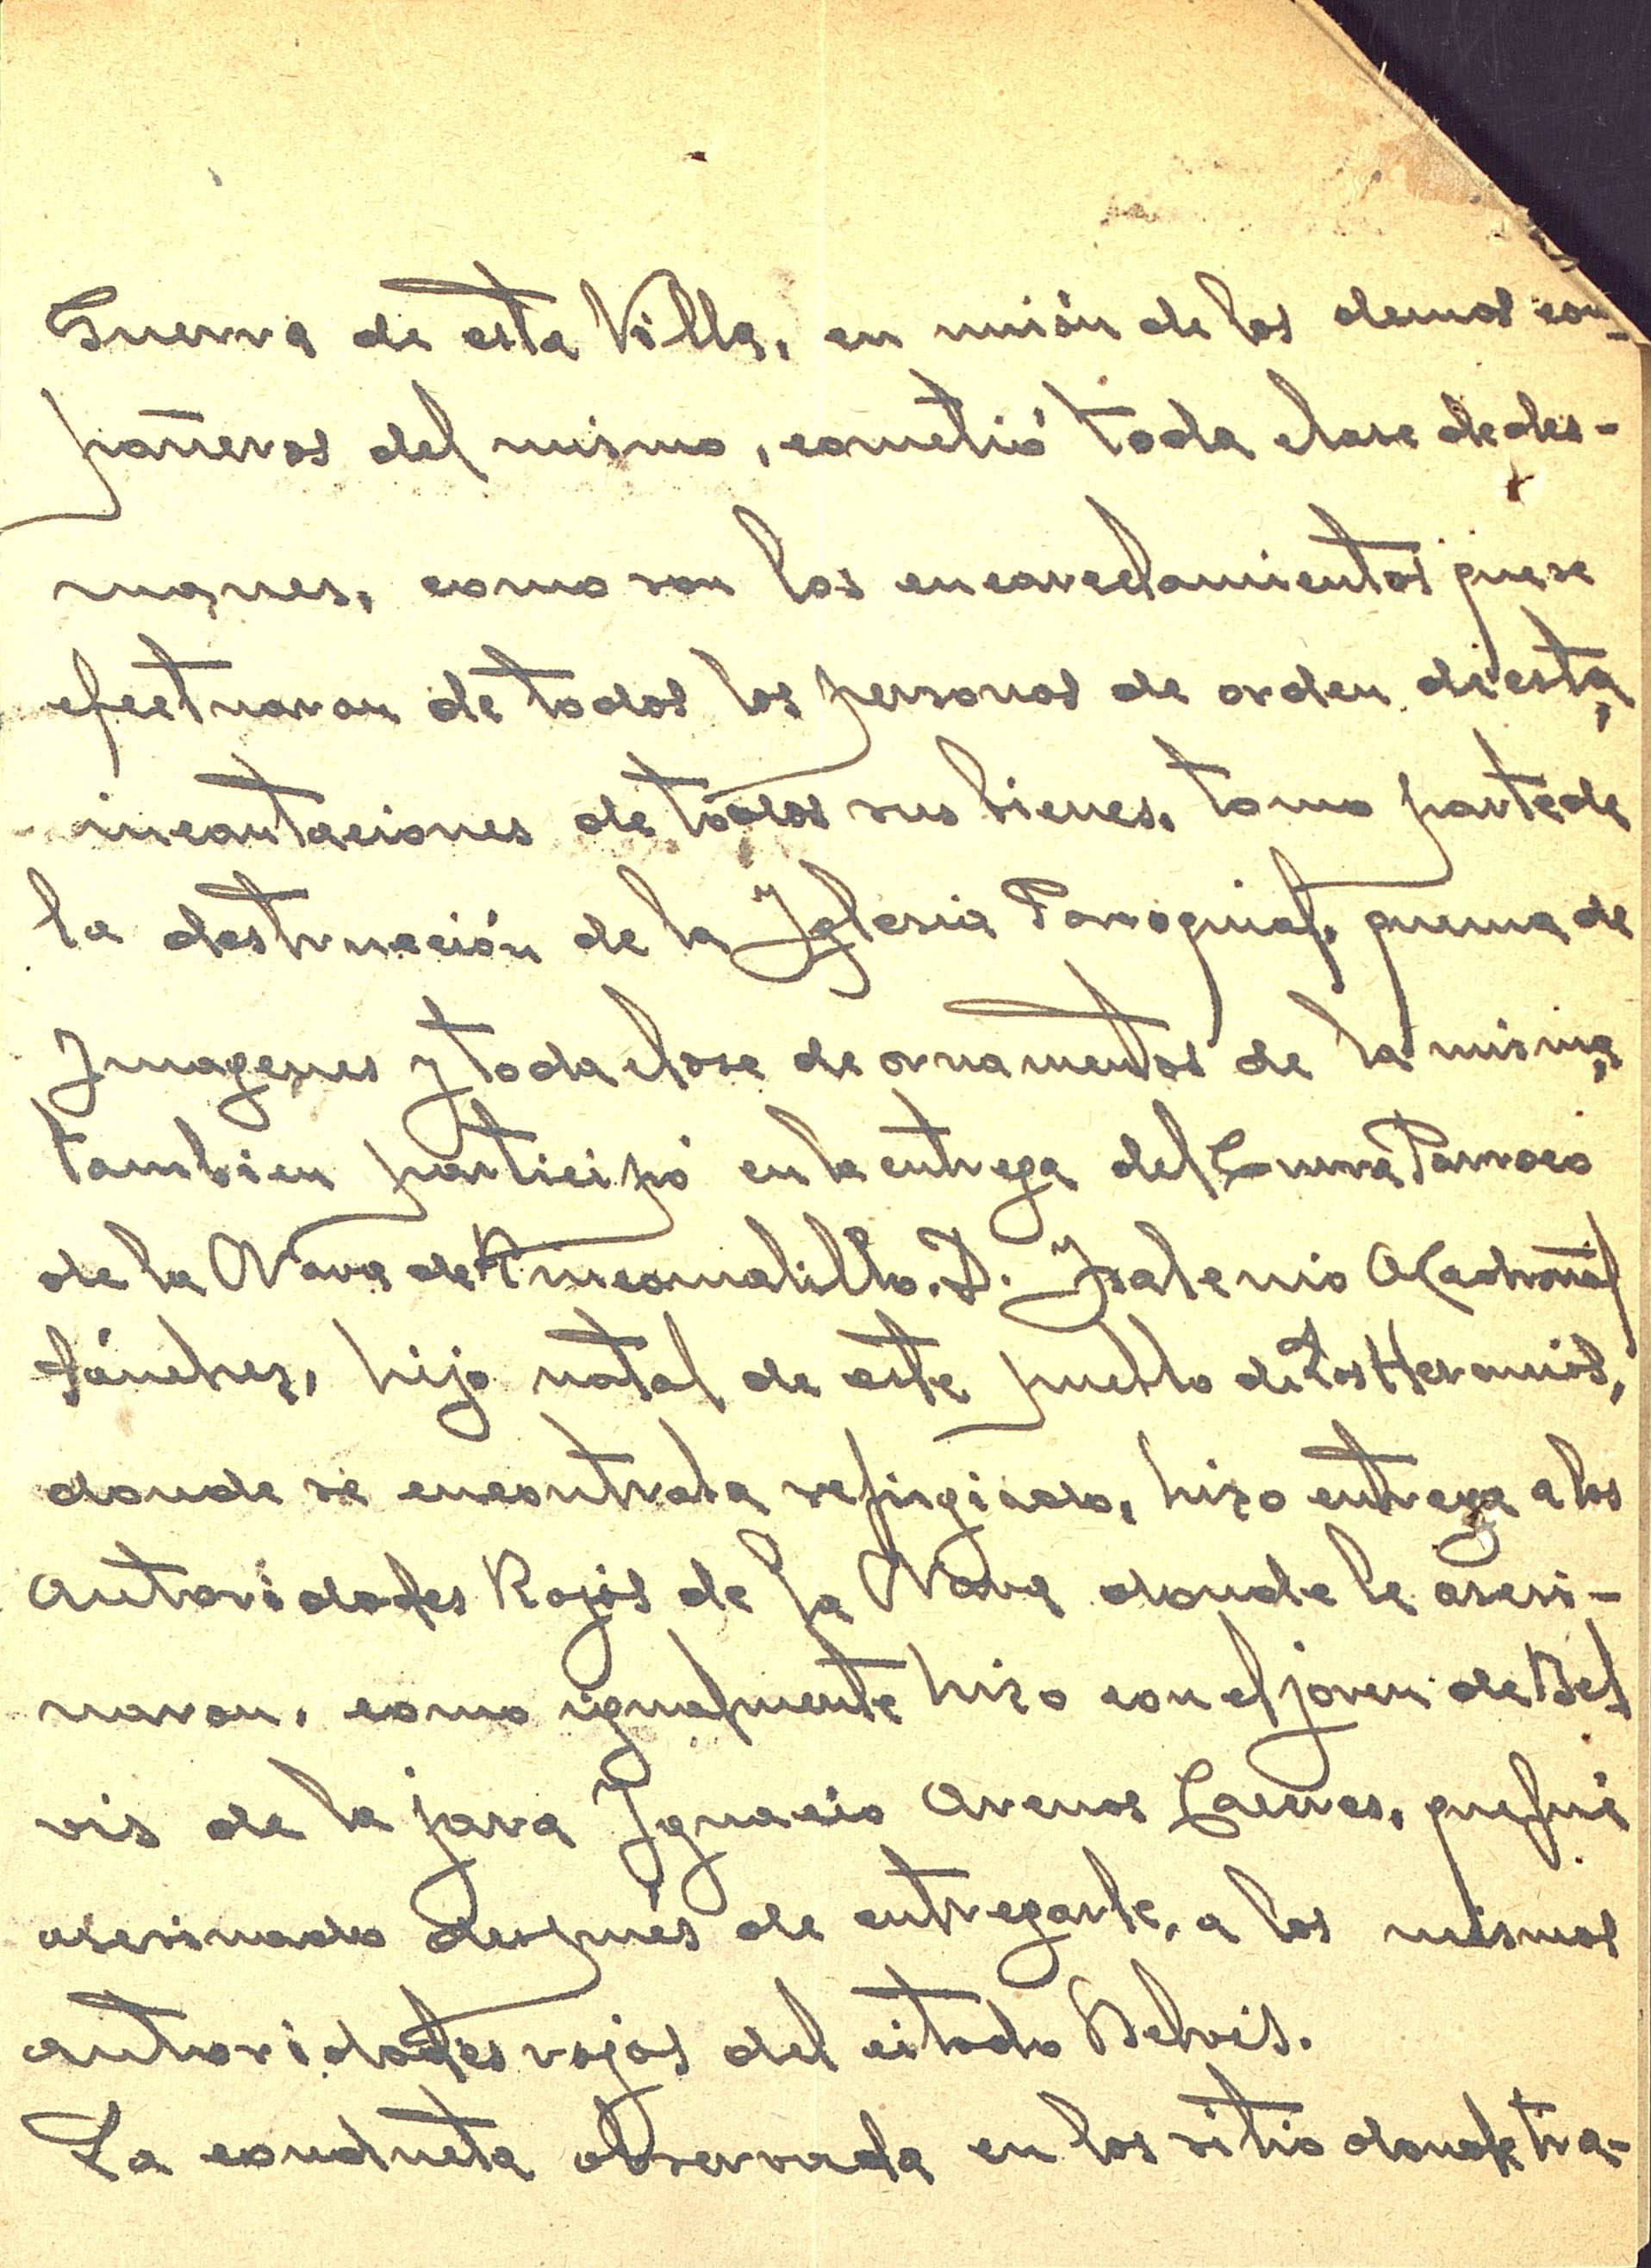 Guerra de esta Villa, en unión de los demas com-
pañeros del mismo, cometió toda clase de des-
manes, como son los encarcelamientos que se
efectuaron de todas las personas de orden de esta,
incautaciones de todos sus bienes, tomo parte de
la destrucción de la Iglesia Parroquial, quema de
Imagenes y toda clase de ornamentos de la misma,
tambien participó en la entrega del Cura Parroco
de la Nava de Ricomalillo. D.
Sánchez, hijo natal de este pueblo de Los Navalmorales,
donde se encontraba refugiado, hizo entrega a las
autoridades Rojas de la Nava donde le asesi-
naron, como igualmente hizo con el joven de Bel
vis de la jara Ignacio Arenas que fué
asesinado después de entregarle, a las mismas
autoridades rojas del citado Belvis.
La conducta observada en los sitio donde tra-